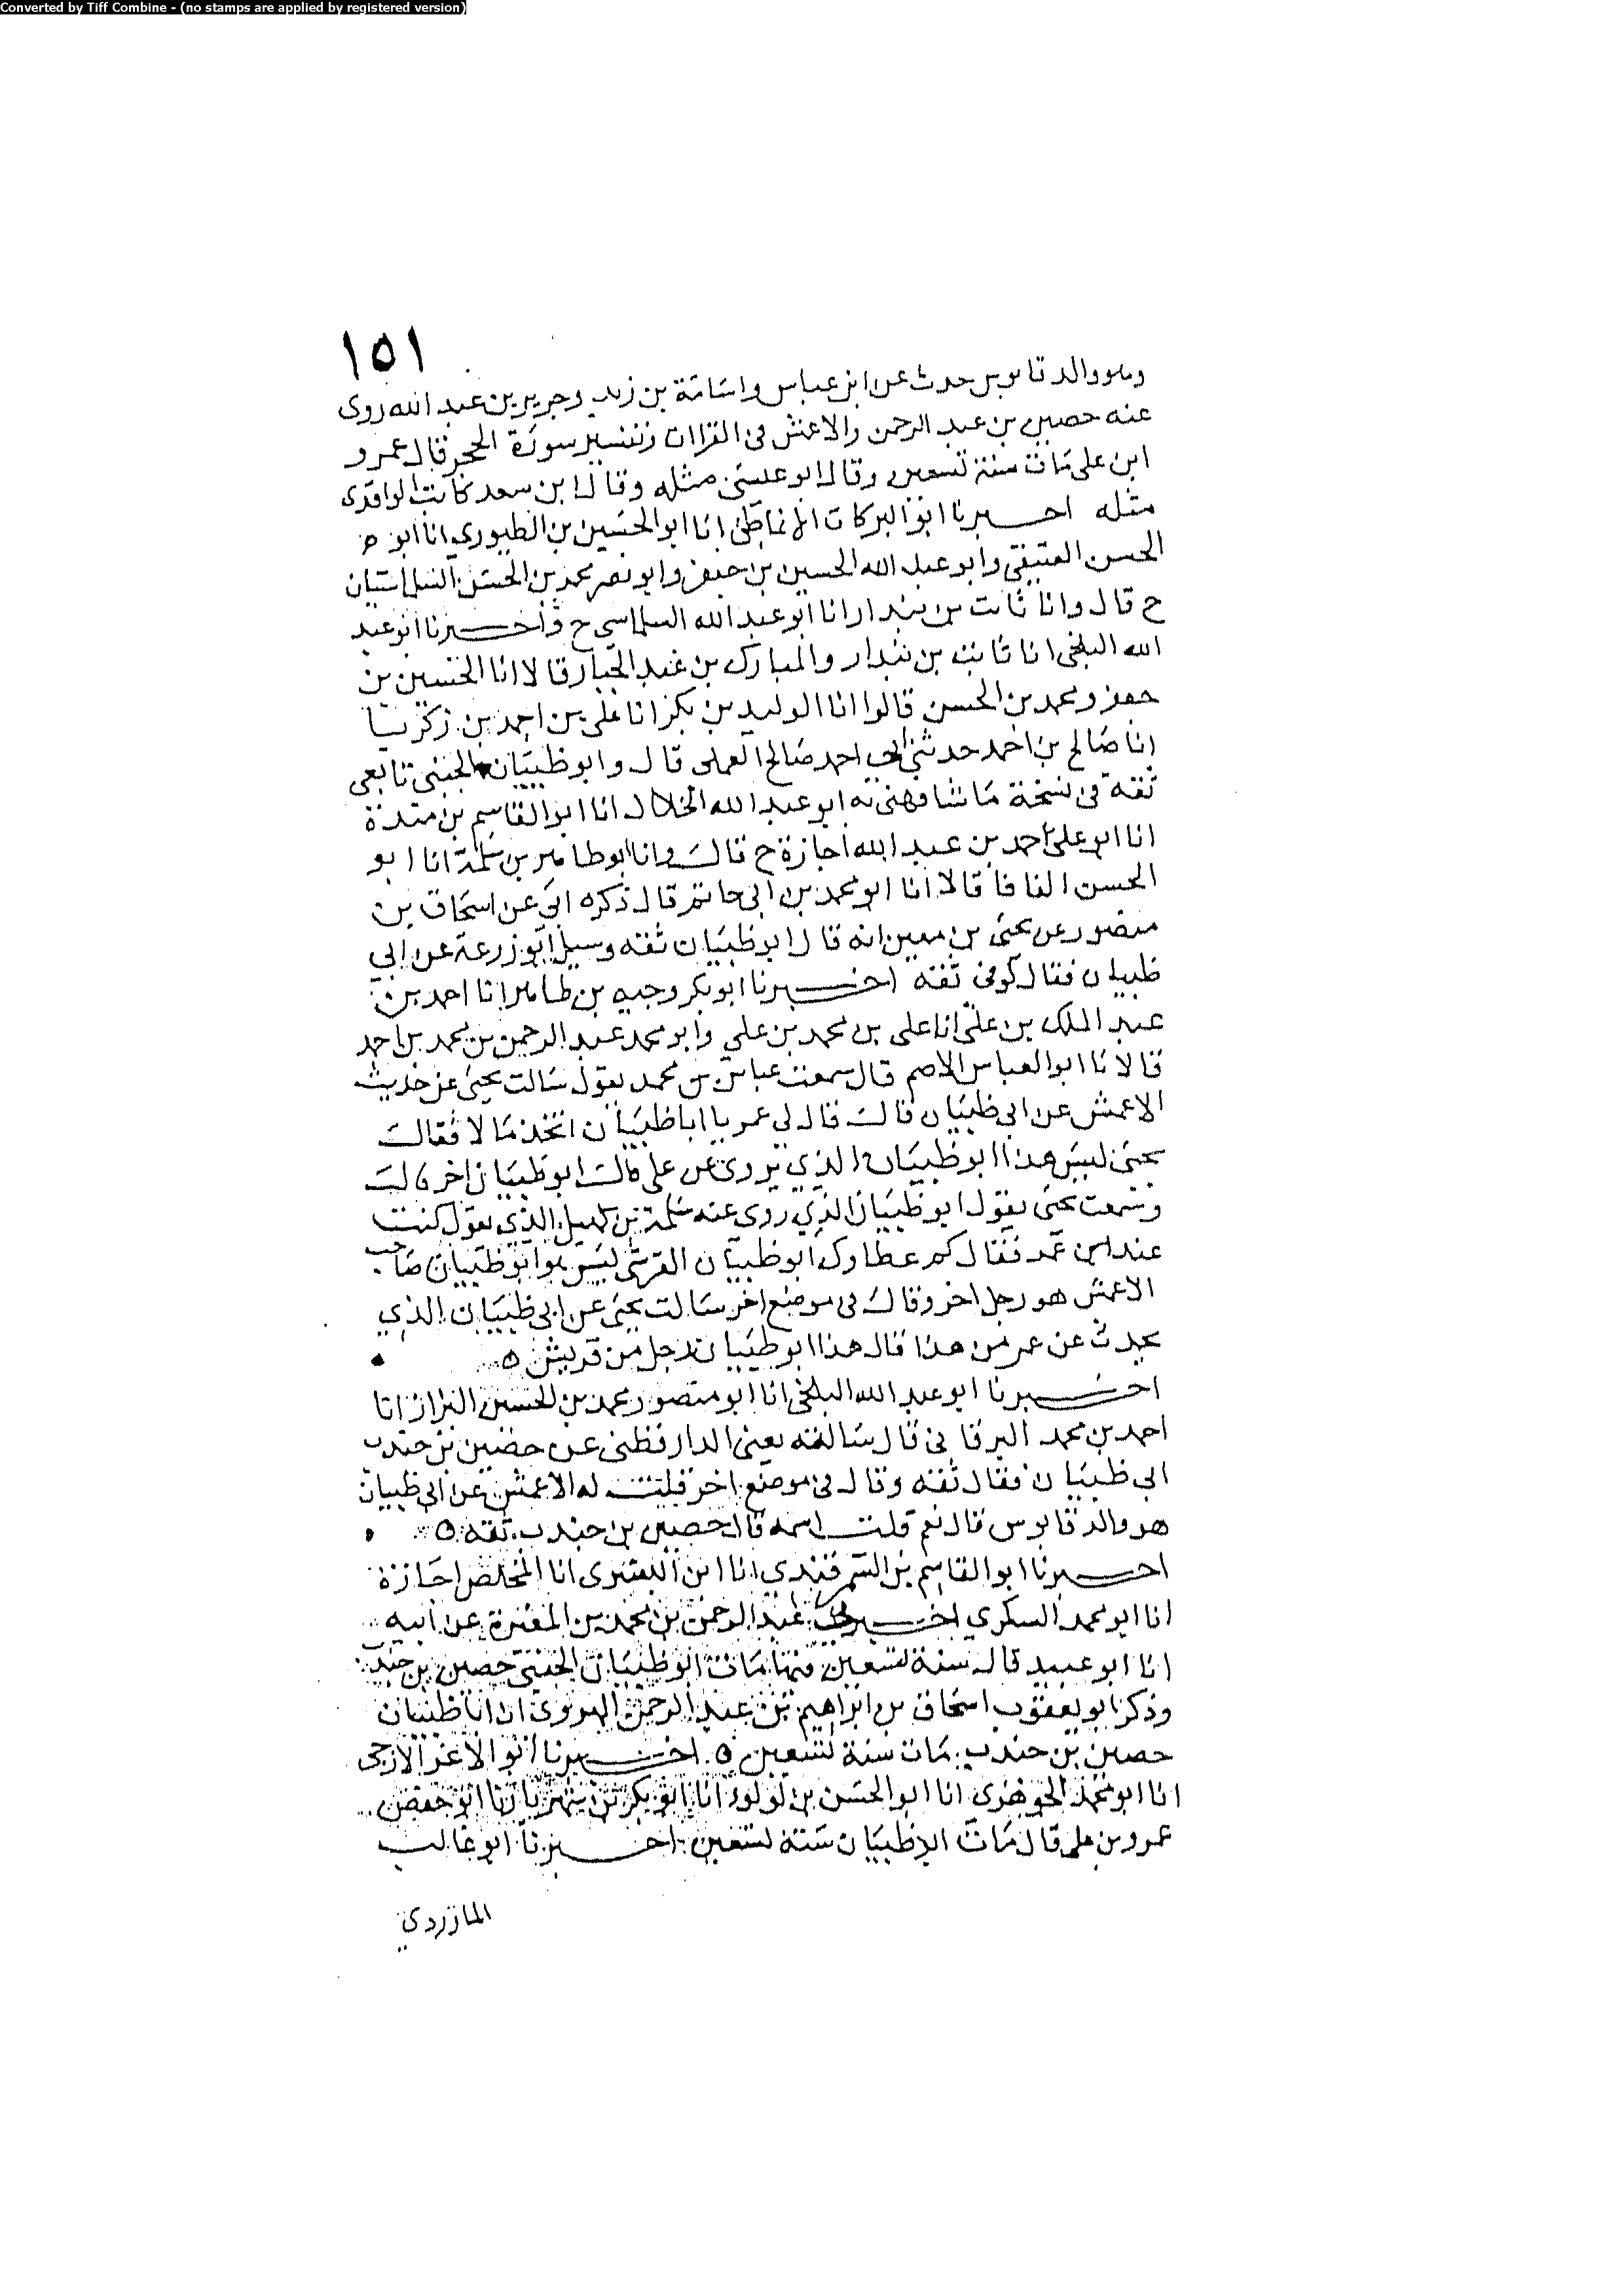 Converted by Tiff Combine - (no stamps are applied by registered version)
١٥١
وهو والد قابوس حدث عن ابن عباس واسامة بن زيد وجرير بن عبد الله روى
عنه حصين بن عبد الرحمن والاعمش في القراات وتفسير سورة الحجر قال عمرو
ابن على مات سنة تسعين وقال ابو عيسى مثله وقال ابن سعد كاتب الواقدى
مثله اخبرنا ابو البركات الانماطى انا ابو الحسين بن الطيوري انا ابو
الحسن العتيقي وابو عبد الله الحسين بن جعفر وابو نصر محمد بن الحسن السلماسيان
ح قال وانا ثابت بن بندار انا ابو عبد الله السلماسي ح واخبرنا ابو عبد
الله البلخى انا ثابت بن بندار والمبارك بن عبد الجبار قالا انا الحسين بن
جعفر ومحمد بن الحسن قالوا انا الوليد بن بكر انا على بن احمد بن زكريا
انا صالح بن احمد حدثني ابى احمد صالح العجلى قال وابو ظبيان الجنبى تابعى
ثقة في نسخة ما شافهنى به ابو عبد الله الخلال انا ابو القاسم بن مندة
انا ابو على حمد بن عبد الله اجازة ح قال وانا ابو طاهر بن سلمة انا ابو
الحسن الفافا قالا انا ابو محمد بن ابى حاتم قال ذكره ابى عن اسحاق بن
منصور عن يحيى بن معين انه قال ابو ظبيان ثقه وسيل ابو زرعة عن ابي
ظبيان فقال كوفى ثقه اخبرنا ابو بكر وجيه بن طاهر انا احمد بن
عبد الملك بن على انا على بن محمد بن على وابو محمد عبد الرحمن بن محمد بن احمد
قالا نا ابو العباس الاصم قال سمعت عباس بن محمد يقول سالت يحيى عن حديث
الاعمش عن ابى ظبيان قال قال لى عمر يا ابا ظبيان اتخذ مالا فقال
يحيى ليس هذا ابو ظبيان الذي يروى عن على قال ابو ظبيان اخر قال
وسمعت يحيى يقول ابو ظبيان الذي روى عنه سلمة بن كهيل الذي يقول كنت
عند ابن عمر فقال كم عطاوك ابو ظبيان القرشى ليس هو ابو ظبيان صاحب
الاعمش هو رجل اخر وقال فى موضع اخر سالت يحيى عن ابى ظبيان الذي
يحدث عن عمر من هذا قال هذا ابو ظبيان رجل من قريش ه
اخبرنا ابو عبد الله البلخى انا ابو منصور محمد بن الحسين البزاز انا
احمد بن محمد البرقانى قال سالته يعنى الدارقطنى عن حصين بن جندب
ابى ظبيان فقال ثقه وقال فى موضع اخر قلت له الاعمش عن ابى ظبيان
هو والد قابوس قال نعم قلت اسمه قال حصين بن جندب ثقه ه
اخبرنا ابو القاسم بن السمرقندي انا ابن البسرى انا المخلص اجازة
انا ابو محمد السكري اخبرنى عبد الرحمن بن محمد بن المغيرة عن ابيه
انا ابو عبيد قال سنة تسعين فيها مات ابو ظبيان الجنبي حصين بن جندب
وذكر ابو يعقوب اسحاق بن ابراهيم بن عبد الرحمن الهروى ان ابا ظبيان
حصين بن جندب مات سنة تسعين ه اخبرنا ابو الاغر الازجى
انا ابو محمد الجوهرى انا ابو الحسن بن لولو انا ابو بكر بن شهريار نا ابو حفص
عمرو بن على قال مات ابو ظبيان سنة تسعين اخبرنا ابو غالب
الماوردي